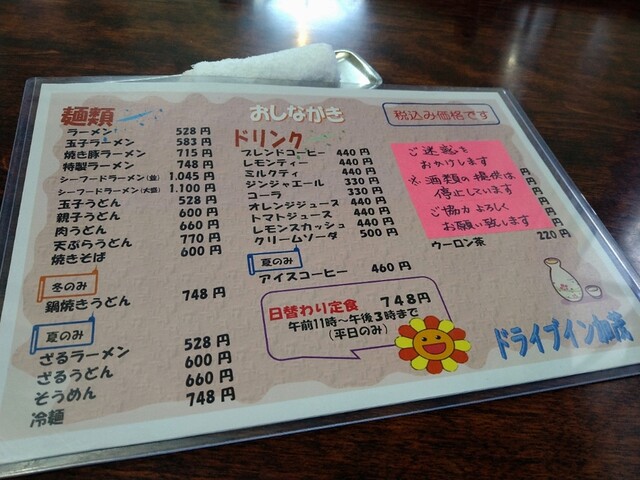 おしながき
税込み価格です
麺類
ラーメン 528円
玉子ラーメン 583円
焼き豚ラーメン 715円
特製ラーメン 748円
シーフードラーメン(並) 1.045円
シーフードラーメン(大盛) 1.100円
玉子うどん 528円
親子うどん 600円
肉うどん 660円
天ぷらうどん 770円
焼きそば 600円
冬のみ
鍋焼きうどん 748円
夏のみ
ざるラーメン 528円
ざるうどん 600円
そうめん 660円
冷麺 748円
ドリンク
ブレンドコーヒー 440円
レモンティー 440円
ミルクティ 440円
ジンジャエール 330円
コーラ 330円
オレンジジュース 440円
トマトジュース 440円
レモンスカッシュ 440円
クリームソーダ 500円
夏のみ
アイスコーヒー 460円
日替わり定食 748円
午前11時〜午後3時まで
(平日のみ)
ご迷惑を
おかけします
※酒類の提供は
停止しています
ご協力よろしく
お願い致します
円
円
円
円
ウーロン茶 220円
ドライブイン加茂